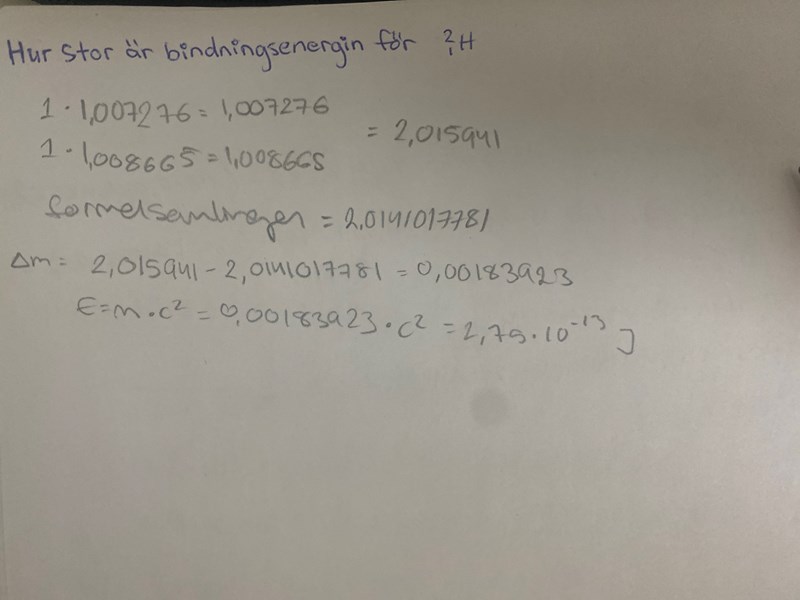 Hur stor är bindningsenergin för ²₁H
1 · 1,007276 = 1,007276
= 2,015941
1 · 1,008665 = 1,008665
formelsamlingen = 2,0141017781
Δm = 2,015941 - 2,0141017781 = 0,00183923
E = m · c² = 0,00183923 · c² = 2,75 · 10⁻¹³ J